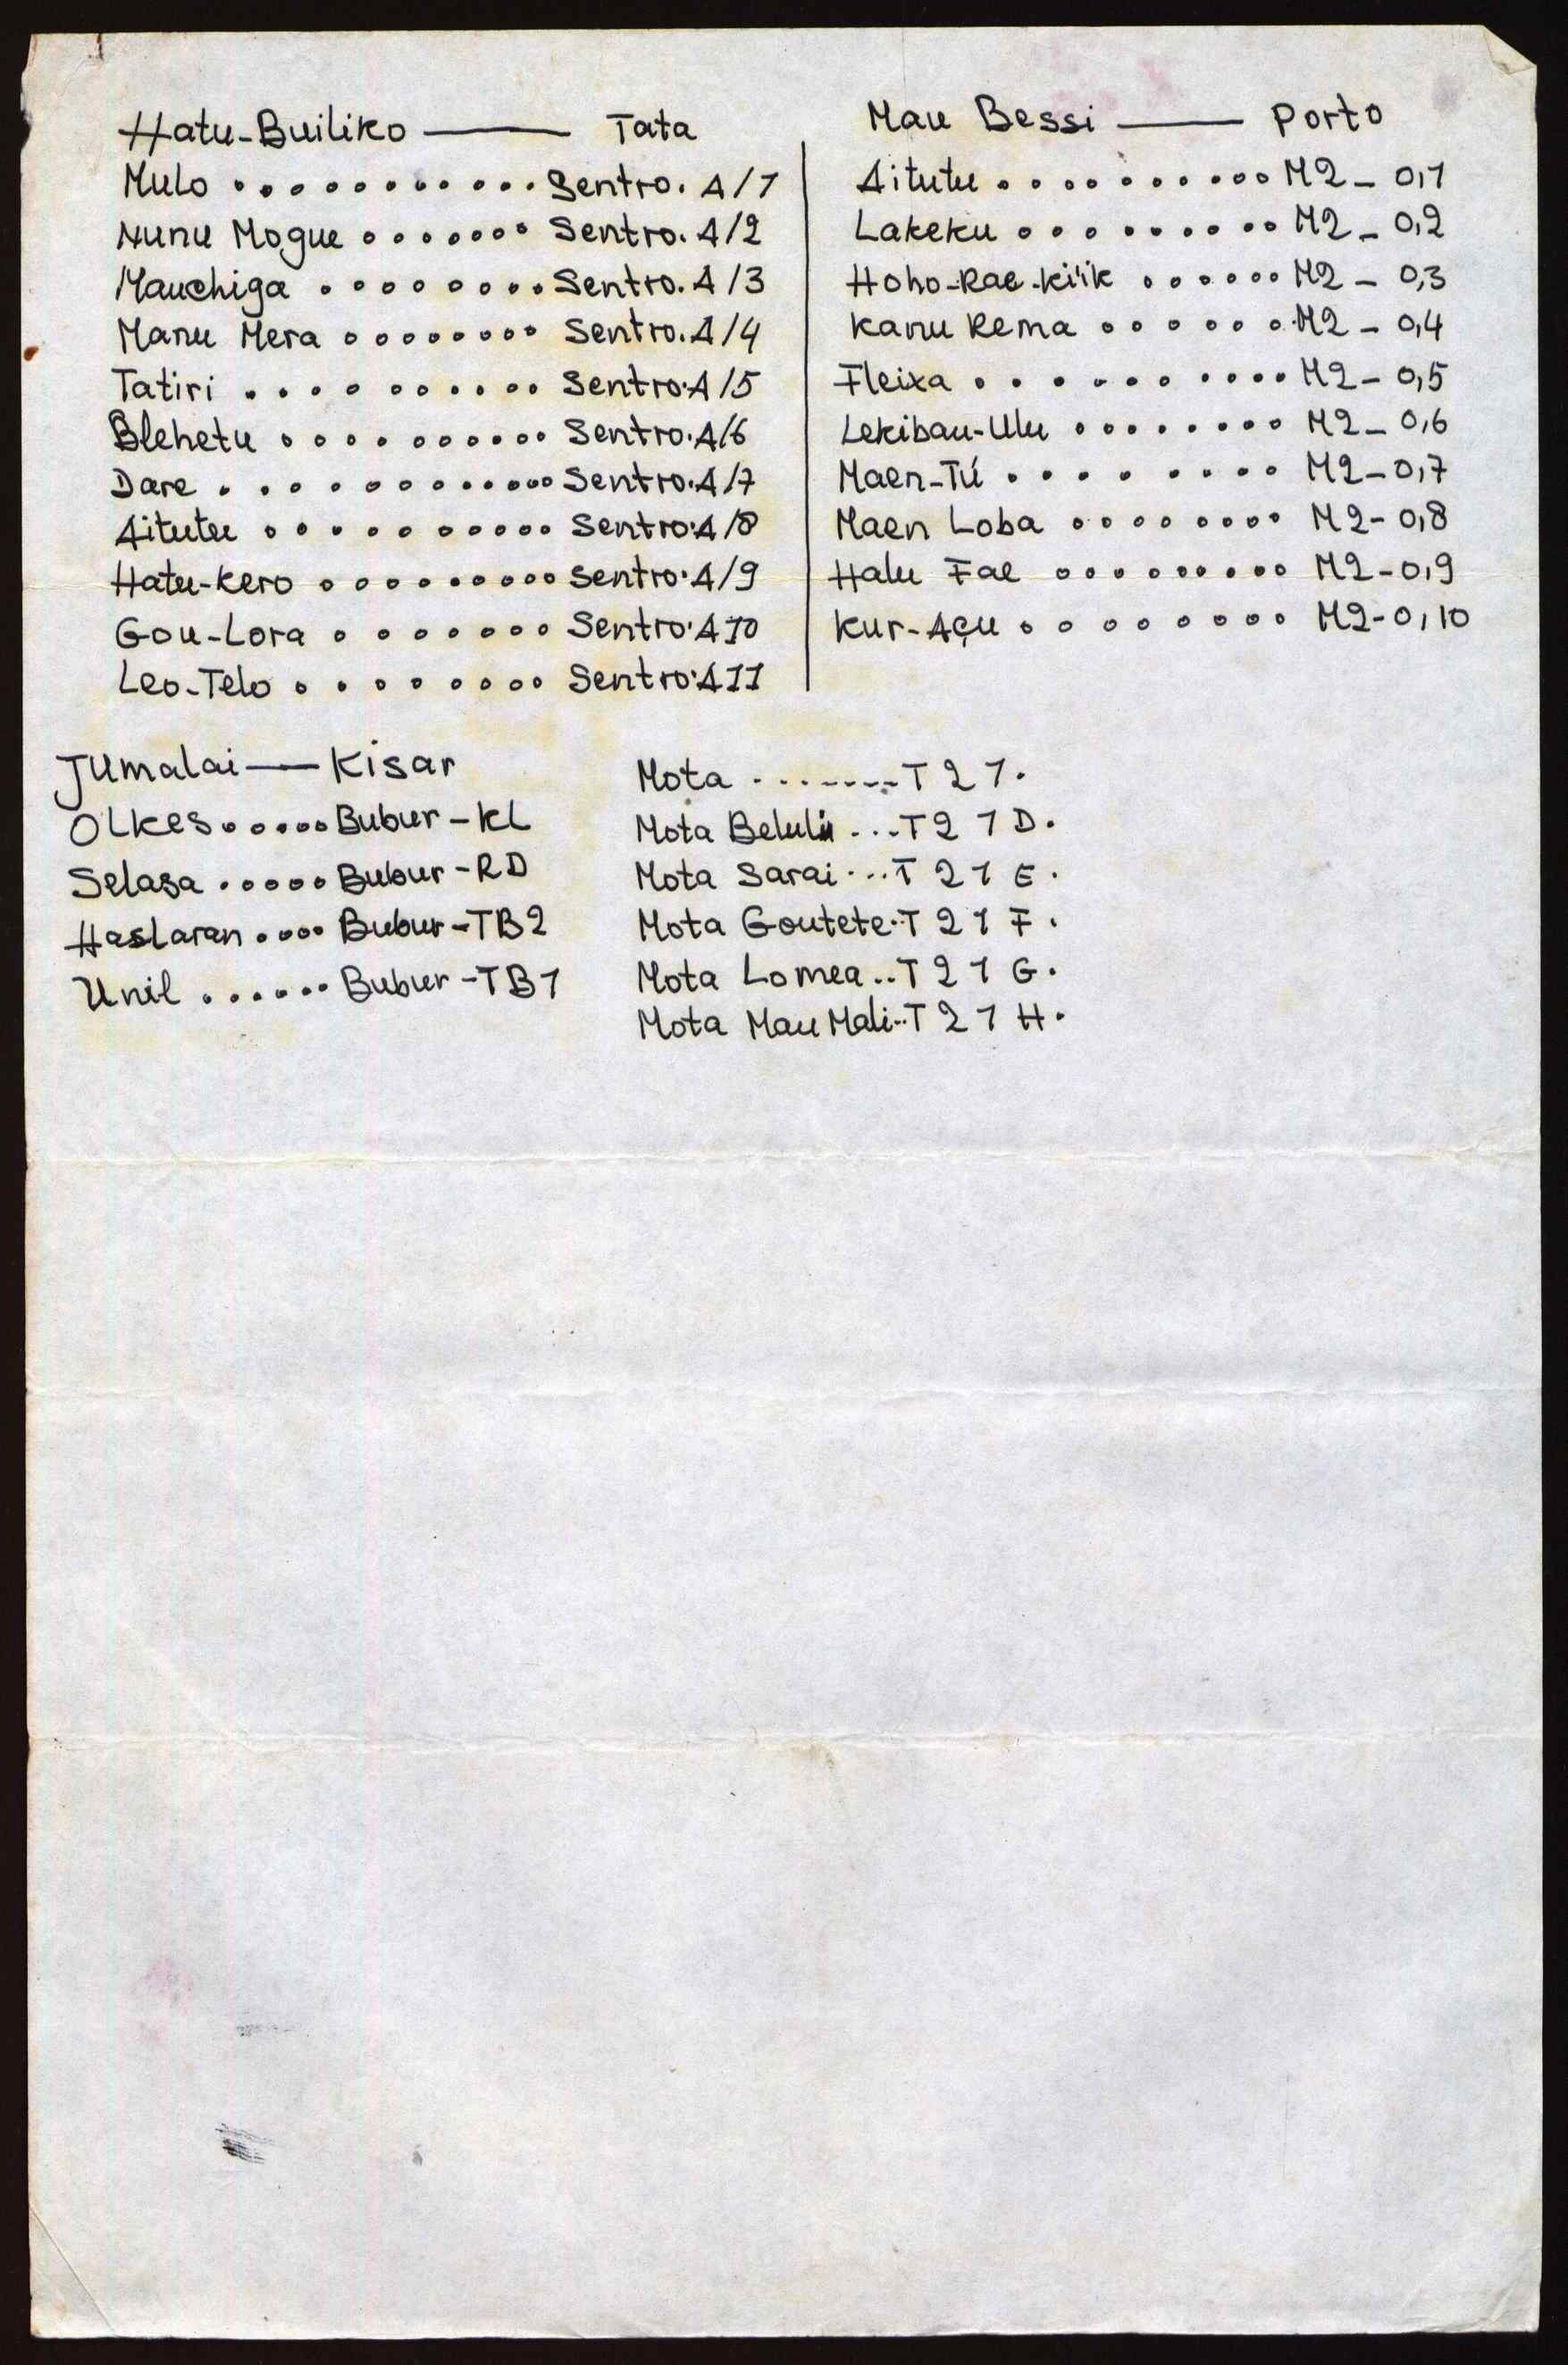 Hatu-Builiko —— Tata
Mulo ............ Sentro. A/1
Nunu Mogue ....... Sentro. A/2
Mauchiga ......... Sentro. A/3
Manu Mera ........ Sentro. A/4
Tatiri .......... Sentro. A/5
Blehetu .......... Sentro. A/6
Dare ............ Sentro. A/7
Aitutu .......... Sentro. A/8
Hatu-Kero ......... Sentro. A/9
Gou-Lora ........ Sentro. A10
Leo-Telo ........ Sentro. A11
Mau Bessi —— Porto
Aitutu .......... M2 - 0,1
Lakeku ......... M2 - 0,2
Hoho-Rae-Ki'ik ...... M2 - 0,3
Kanu Rema ...... M2 - 0,4
Fleixa .......... M2 - 0,5
Lekibau-Ulu ........ M2 - 0,6
Maen-Tú ........ M2 - 0,7
Maen Loba ........ M2 - 0,8
Halu Fae ......... M2 - 0,9
Kur-Açu ........ M2 - 0,10
Jumalai —— Kisar
Olkes ...... Bubur - KL
Selasa ..... Bubur - RD
Haslaran .... Bubur - TB2
Unil ...... Bubur - TB1
Mota ........ T 2 1.
Mota Beluli ... T 2 1 D.
Mota Sarai ... T 2 1 E.
Mota Goutete .. T 2 1 F.
Mota Lomea .. T 2 1 G.
Mota Mau Mali .. T 2 1 H.